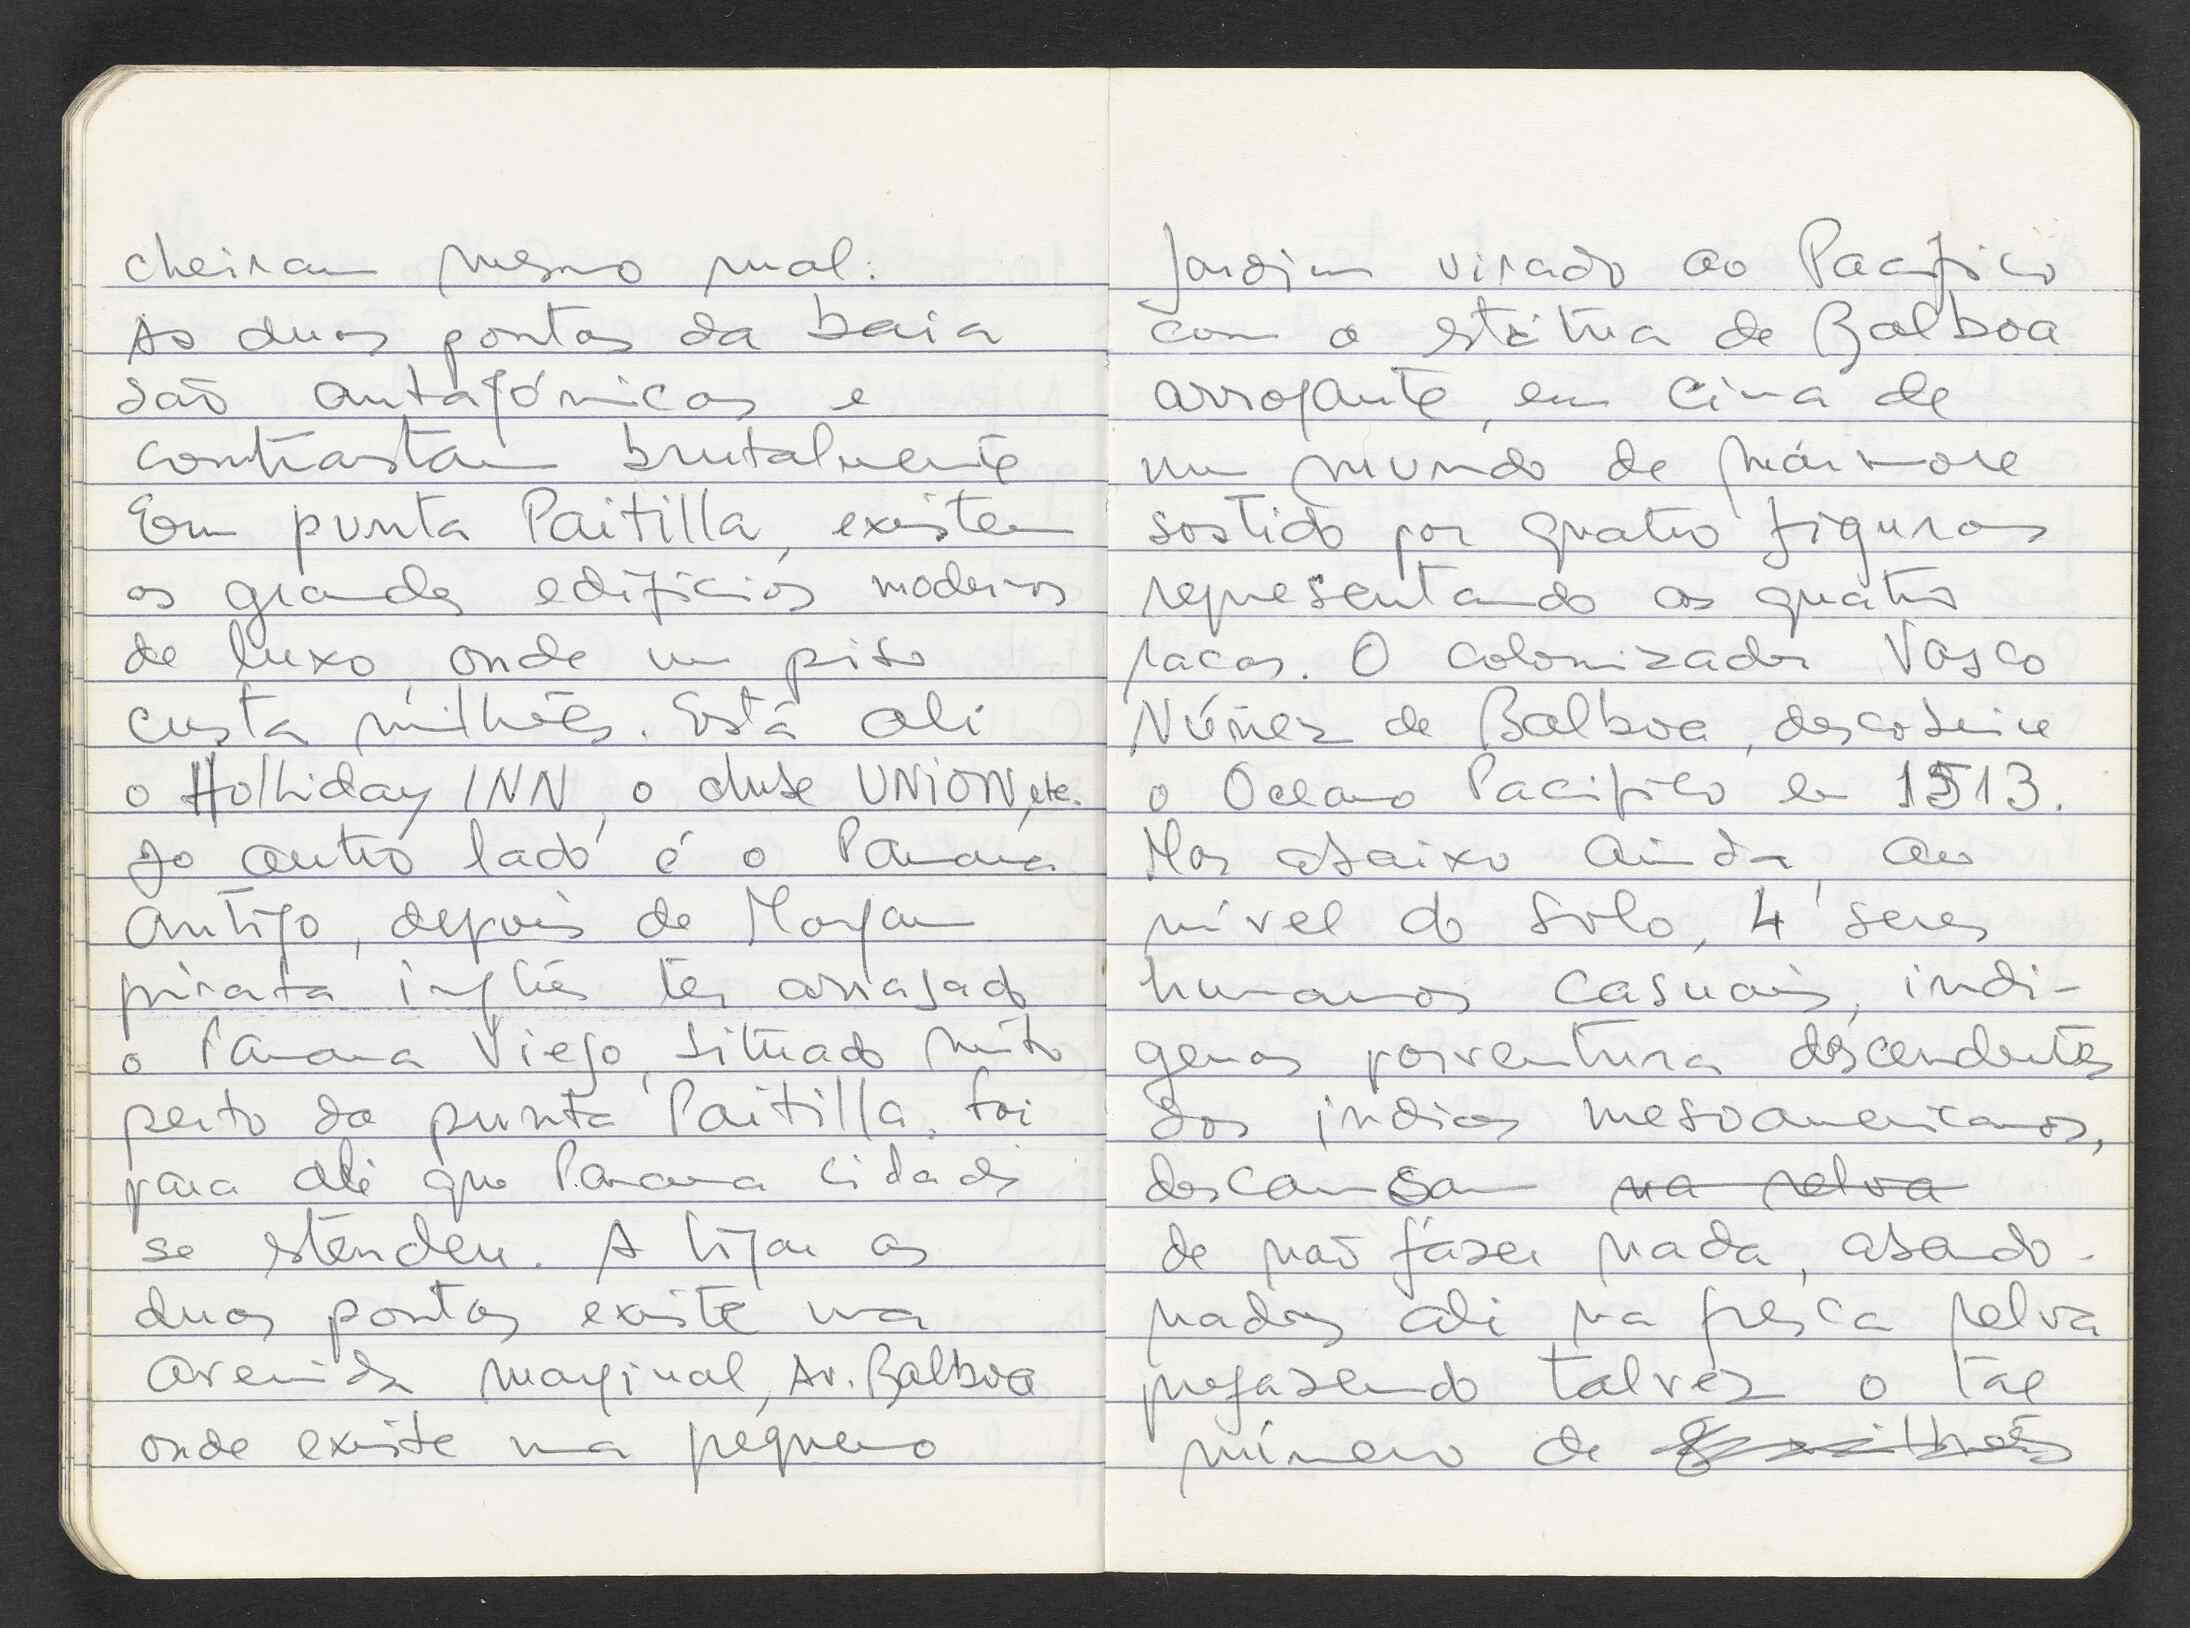 cheiram mesmo mal.
As duas pontas da baia
são antagónicas e
contrastam brutalmente
Em punta Paitilla, existem
os grandes edifícios modernos
de luxo, onde um piso
custa milhões. Está ali
o Holliday INN, o clube UNION, etc.
Do outro lado é o Panama
Antigo, depois de Morgan
pirata inglês ter arrasado
o Panama Viejo, situado muito
perto da punta Paitilla. Foi
para ali que Panama cidade
se estendeu. A ligar as
duas pontas existe uma
avenida marginal, Av. Balboa
onde existe um pequeno
Jardim virado ao Pacífico
com a estátua de Balboa
arrogante, em cima de
um mundo de mármore
sostido por quatro figuras
representando as quatro
raças. O colonizador Vasco
Núñez de Balboa, descobrire
o Oceano Pacífico em 1513.
Mas abaixo ainda, ao
nível do solo, 4 seres
humanos casuais, indi-
genas porventura descendentes
dos índios mesoamericanos,
descansam na relva
de não fazer nada, abando-
nados ali na fresca relva
prefazendo talvez o tal
número de milhões